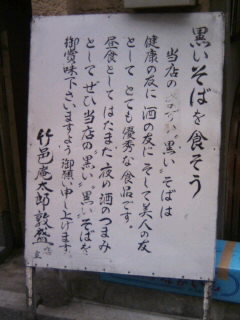 黒いそばを食そう
当店の 黒い そばは
健康の友に 酒の友に そして美人の友
として とても優秀な食品です。
昼食として はたまた 夜の酒のつまみ
として ぜひ当店の 黒い 黒い そばを
御賞味下さいますよう 御願い申し上げます。
竹邑庵太郎敦盛